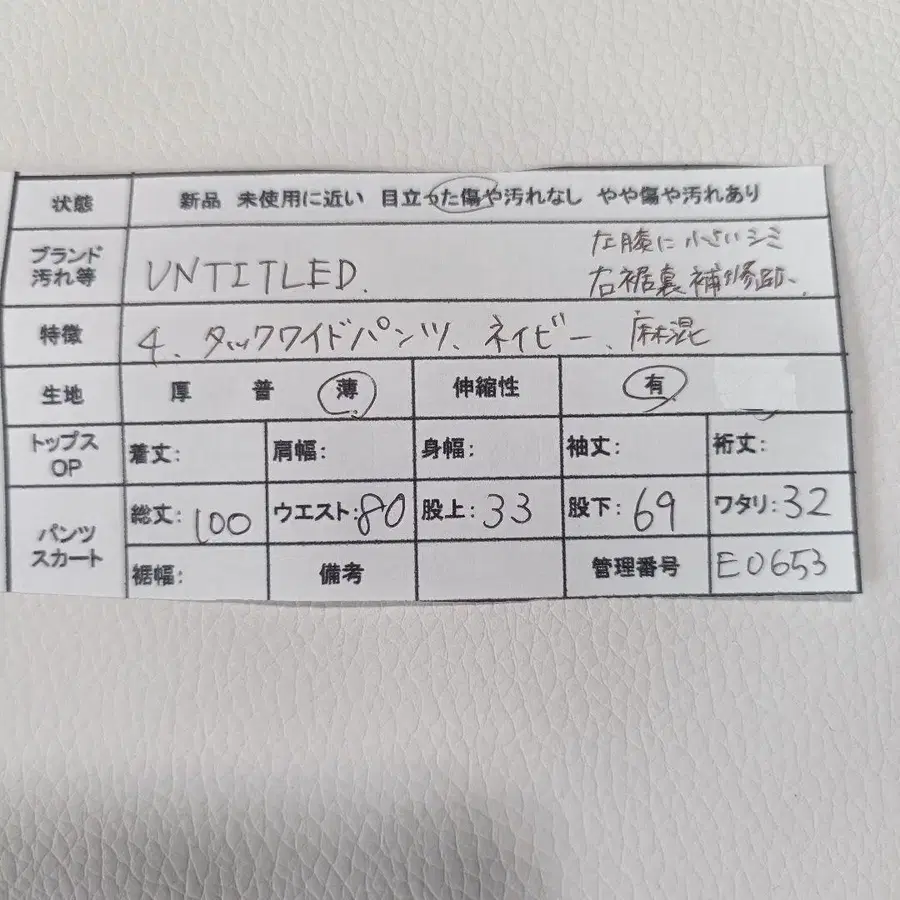 状態 新品 未使用に近い 目立った傷や汚れなし やや傷や汚れあり
ブランド 汚れ等 UNTITLED. 左膝に小さいシミ
右裾裏補修跡、
特徴 4、タックワイドパンツ、ネイビー、麻混
生地 厚 普 薄 伸縮性 有
トップス OP 着丈: 肩幅: 身幅: 袖丈: 裄丈:
パンツ スカート 総丈: 100 ウエスト: 80 股上: 33 股下: 69 ワタリ: 32
裾幅: 備考 管理番号 E0653